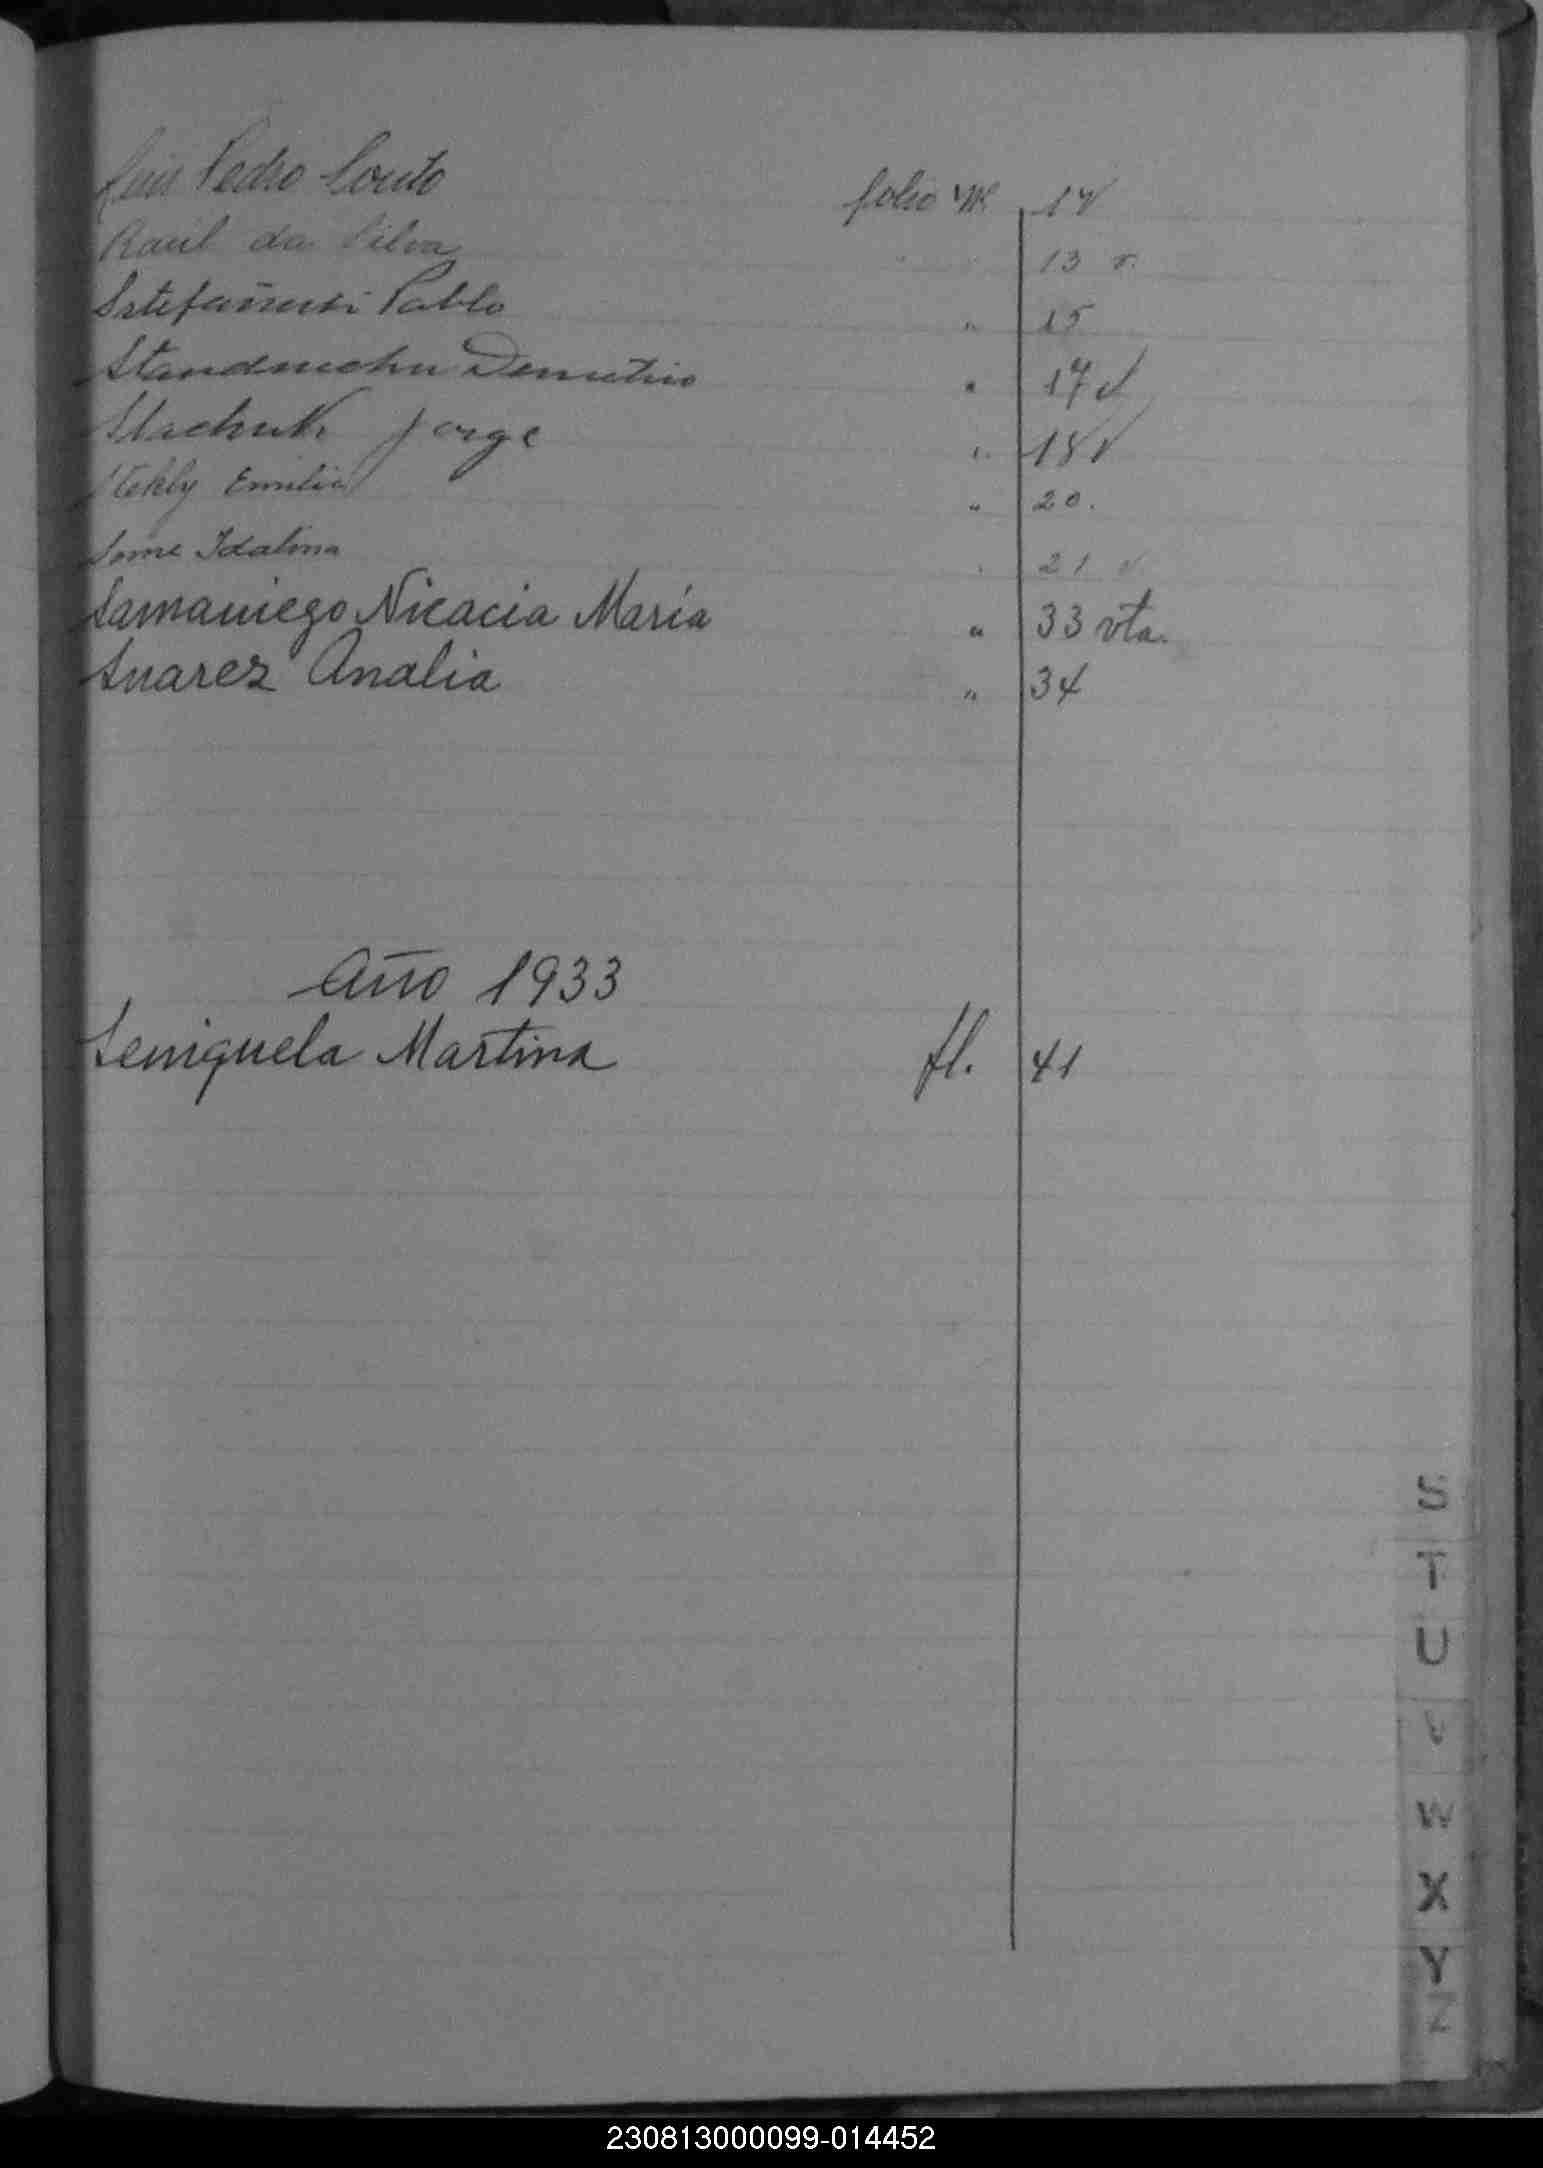 Luis Pedro Couto folio Nº 1 v
Raul da Silva 13 v.
Pablo " 15
Demetrio " 17 v
Stachuk Jorge " 18 v
Stekly Emilia " 20.
Some Idalina " 21 v
Samaniego Nicacia María " 33 vta.
Suarez Analia " 34
Año 1933
Seniquela Martina fl. 41
S
T
U
V
W
X
Y
Z
230813000099-014452